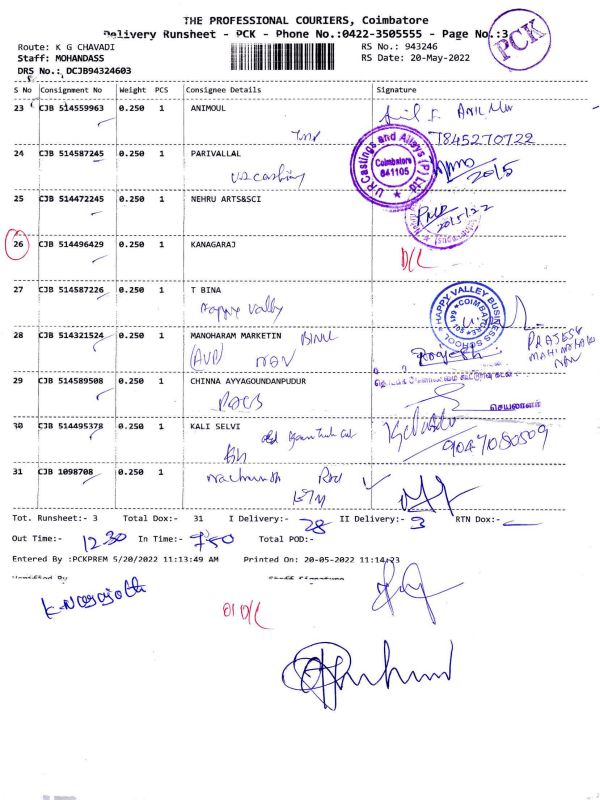 THE PROFESSIONAL COURIERS, Coimbatore
Delivery Runsheet - PCK - Phone No.:0422-3505555 - Page No.:3
PCK
Route: K G CHAVADI
RS No.: 943246
Staff: MOHANDASS
RS Date: 20-May-2022
DRS No.: DCJB94324603
S No Consignment No Weight PCS Consignee Details Signature
23 CJB 514559963 0.250 1 ANIMOUL
7845270722
24 CJB 514587245 0.250 1 PARIVALLAL
U.R Castings and Alloys (P) Ltd
Coimbatore
641105
20/5
25 CJB 514472245 0.250 1 NEHRU ARTS&SCI
20/5/22
26 CJB 514496429 0.250 1 KANAGARAJ
D/L
27 CJB 514587226 0.250 1 T BINA
Happy Valley
HAPPY VALLEY BUSINESS SCHOOL
COIMBATORE
28 CJB 514321524 0.250 1 MANOHARAM MARKETIN
(AVP)
Rajesh
29 CJB 514589508 0.250 1 CHINNA AYYAGOUNDANPUDUR
செயலாளர்
30 CJB 514495378 0.250 1 KALI SELVI
9047080509
31 CJB 1098708 0.250 1
Tot. Runsheet:- 3 Total Dox:- 31 I Delivery:- 28 II Delivery:- 3 RTN Dox:-
Out Time:- 12.30 In Time:- 7.50 Total POD:-
Entered By :PCKPREM 5/20/2022 11:13:49 AM Printed On: 20-05-2022 11:14:23
Verified By Staff Signature
01 D/L